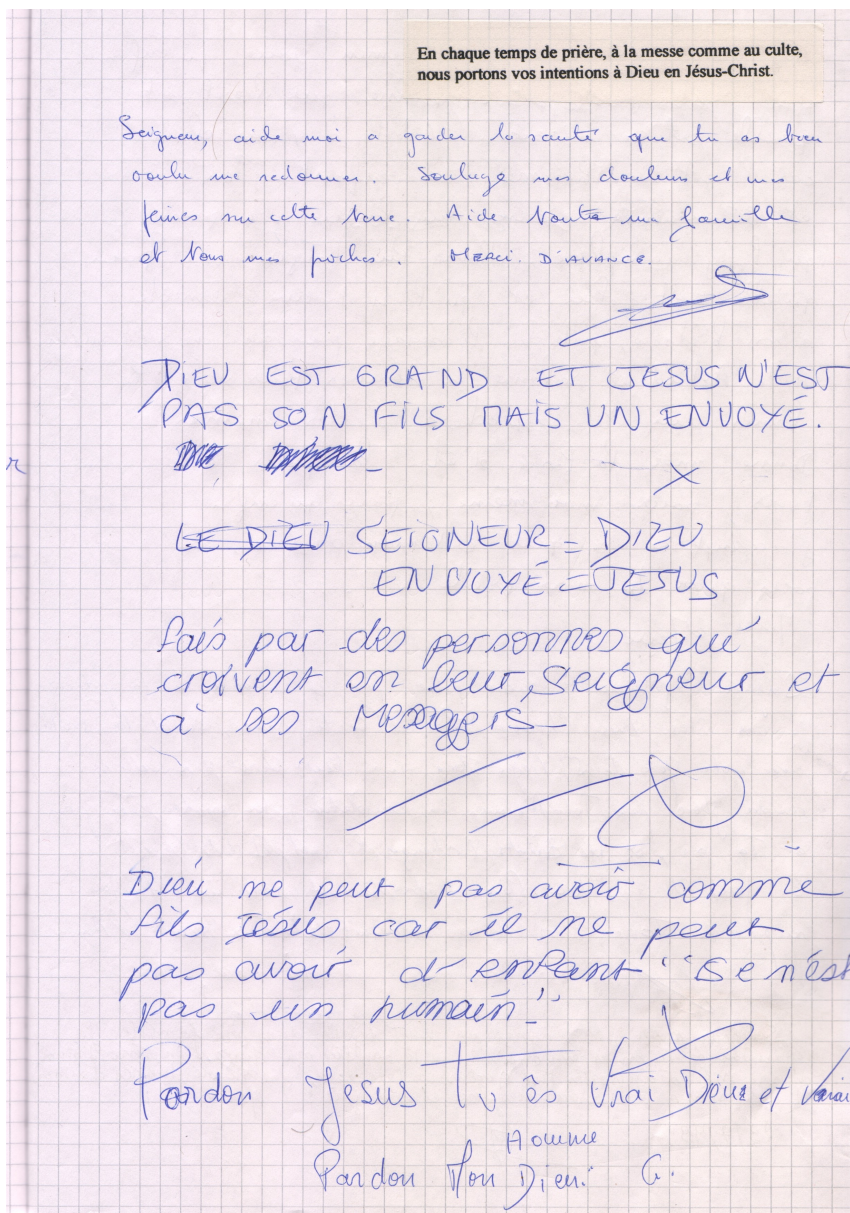 En chaque temps de prière, à la messe comme au culte,
nous portons vos intentions à Dieu en Jésus-Christ.
Seigneur, aide moi a garder la santé que tu as bien
voulu me redonner. Soulage mes douleurs et mes
peines sur cette terre. Aide toute ma famille
et tous mes proches. MERCI. D'AVANCE.
DIEU EST GRAND ET JESUS N'EST
PAS SON FILS MAIS UN ENVOYÉ.
LE DIEU SEIGNEUR = DIEU
ENVOYÉ = JESUS
fais par des personnes qui
croivent en leur, Seigneur et
a' ses Messagers-
Dieu ne peut pas avoir comme
fils Jésus car il ne peut
pas avoir d'enfant "se n'est
pas un humain!"
Pardon Jésus Tu ês Vrai Dieu et Vrai
Homme
Pardon Mon Dieu. G.